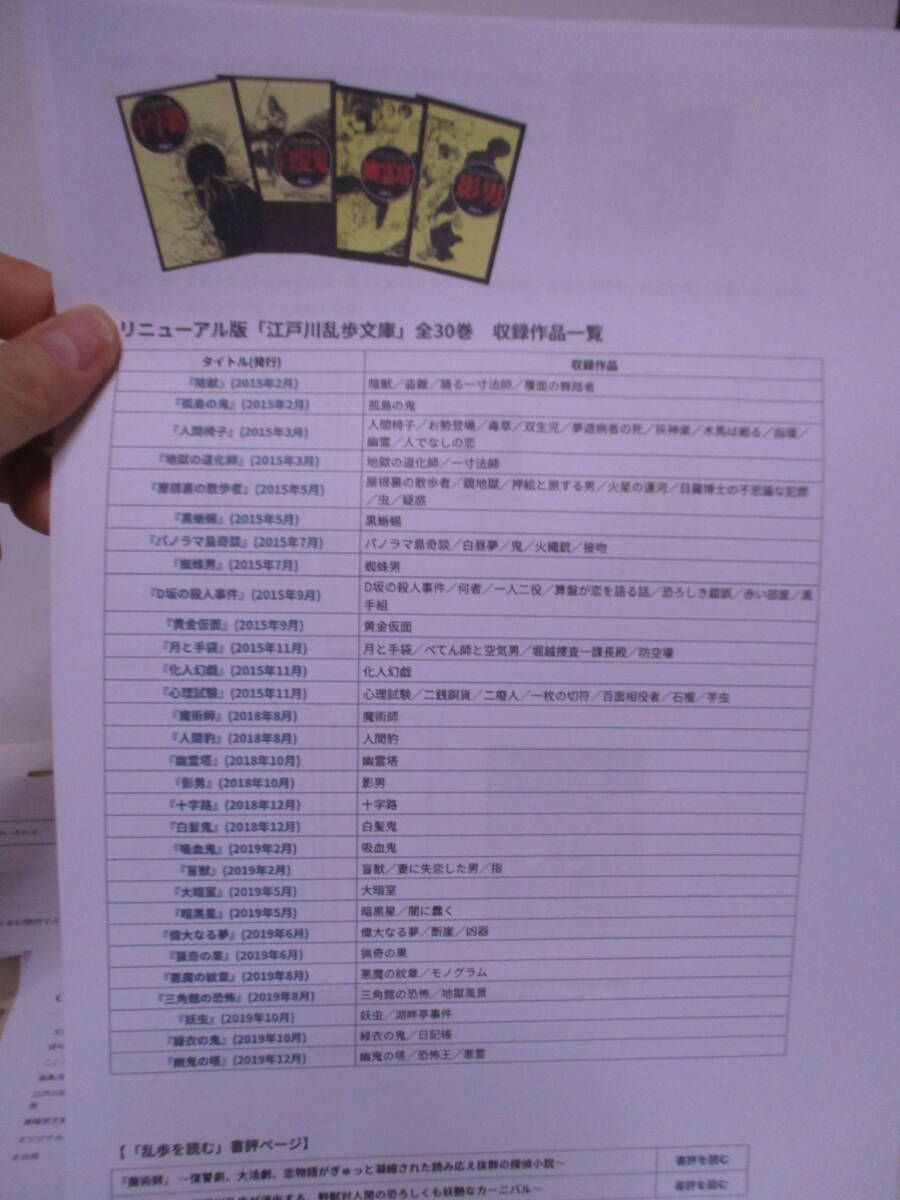 十字路
白髪鬼
幽霊塔
影男
リニューアル版「江戸川乱歩文庫」全30巻 収録作品一覧
タイトル(発行) 収録作品
『陰獣』(2015年2月) 陰獣／盗難／踊る一寸法師／覆面の舞踏者
『孤島の鬼』(2015年2月) 孤島の鬼
『人間椅子』(2015年3月) 人間椅子／お勢登場／毒草／双生児／夢遊病者の死／灰神楽／木馬は廻る／指環／
幽霊／人でなしの恋
『地獄の道化師』(2015年3月) 地獄の道化師／一寸法師
『屋根裏の散歩者』(2015年5月) 屋根裏の散歩者／鏡地獄／押絵と旅する男／火星の運河／目羅博士の不思議な犯罪
／虫／疑惑
『黒蜥蜴』(2015年5月) 黒蜥蜴
『パノラマ島奇談』(2015年7月) パノラマ島奇談／白昼夢／鬼／火縄銃／接吻
『蜘蛛男』(2015年7月) 蜘蛛男
『D坂の殺人事件』(2015年9月) D坂の殺人事件／何者／一人二役／算盤が恋を語る話／恐ろしき錯誤／赤い部屋／黒
手組
『黄金仮面』(2015年9月) 黄金仮面
『月と手袋』(2015年11月) 月と手袋／ぺてん師と空気男／堀越捜査一課長殿／防空壕
『化人幻戯』(2015年11月) 化人幻戯
『心理試験』(2015年11月) 心理試験／二銭銅貨／二癈人／一枚の切符／百面相役者／石榴／芋虫
『魔術師』(2018年8月) 魔術師
『人間豹』(2018年8月) 人間豹
『幽霊塔』(2018年10月) 幽霊塔
『影男』(2018年10月) 影男
『十字路』(2018年12月) 十字路
『白髪鬼』(2018年12月) 白髪鬼
『吸血鬼』(2019年2月) 吸血鬼
『盲獣』(2019年2月) 盲獣／妻に失恋した男／指
『大暗室』(2019年5月) 大暗室
『暗黒星』(2019年5月) 暗黒星／闇に蠢く
『偉大なる夢』(2019年6月) 偉大なる夢／断崖／凶器
『猟奇の果』(2019年6月) 猟奇の果
『悪魔の紋章』(2019年8月) 悪魔の紋章／モノグラム
『三角館の恐怖』(2019年8月) 三角館の恐怖／地獄風景
『妖虫』(2019年10月) 妖虫／湖畔亭事件
『緑衣の鬼』(2019年10月) 緑衣の鬼／日記帳
『幽鬼の塔』(2019年12月) 幽鬼の塔／恐怖王／悪霊
【「乱歩を読む」書評ページ】
『魔術師』 ～復讐劇、大活劇、恋物語がぎゅっと凝縮された読み応え抜群の探偵小説～ 書評を読む
野獣対人間の恐ろしくも妖艶なカーニバル～ 書評を読む
オリジナル
その他